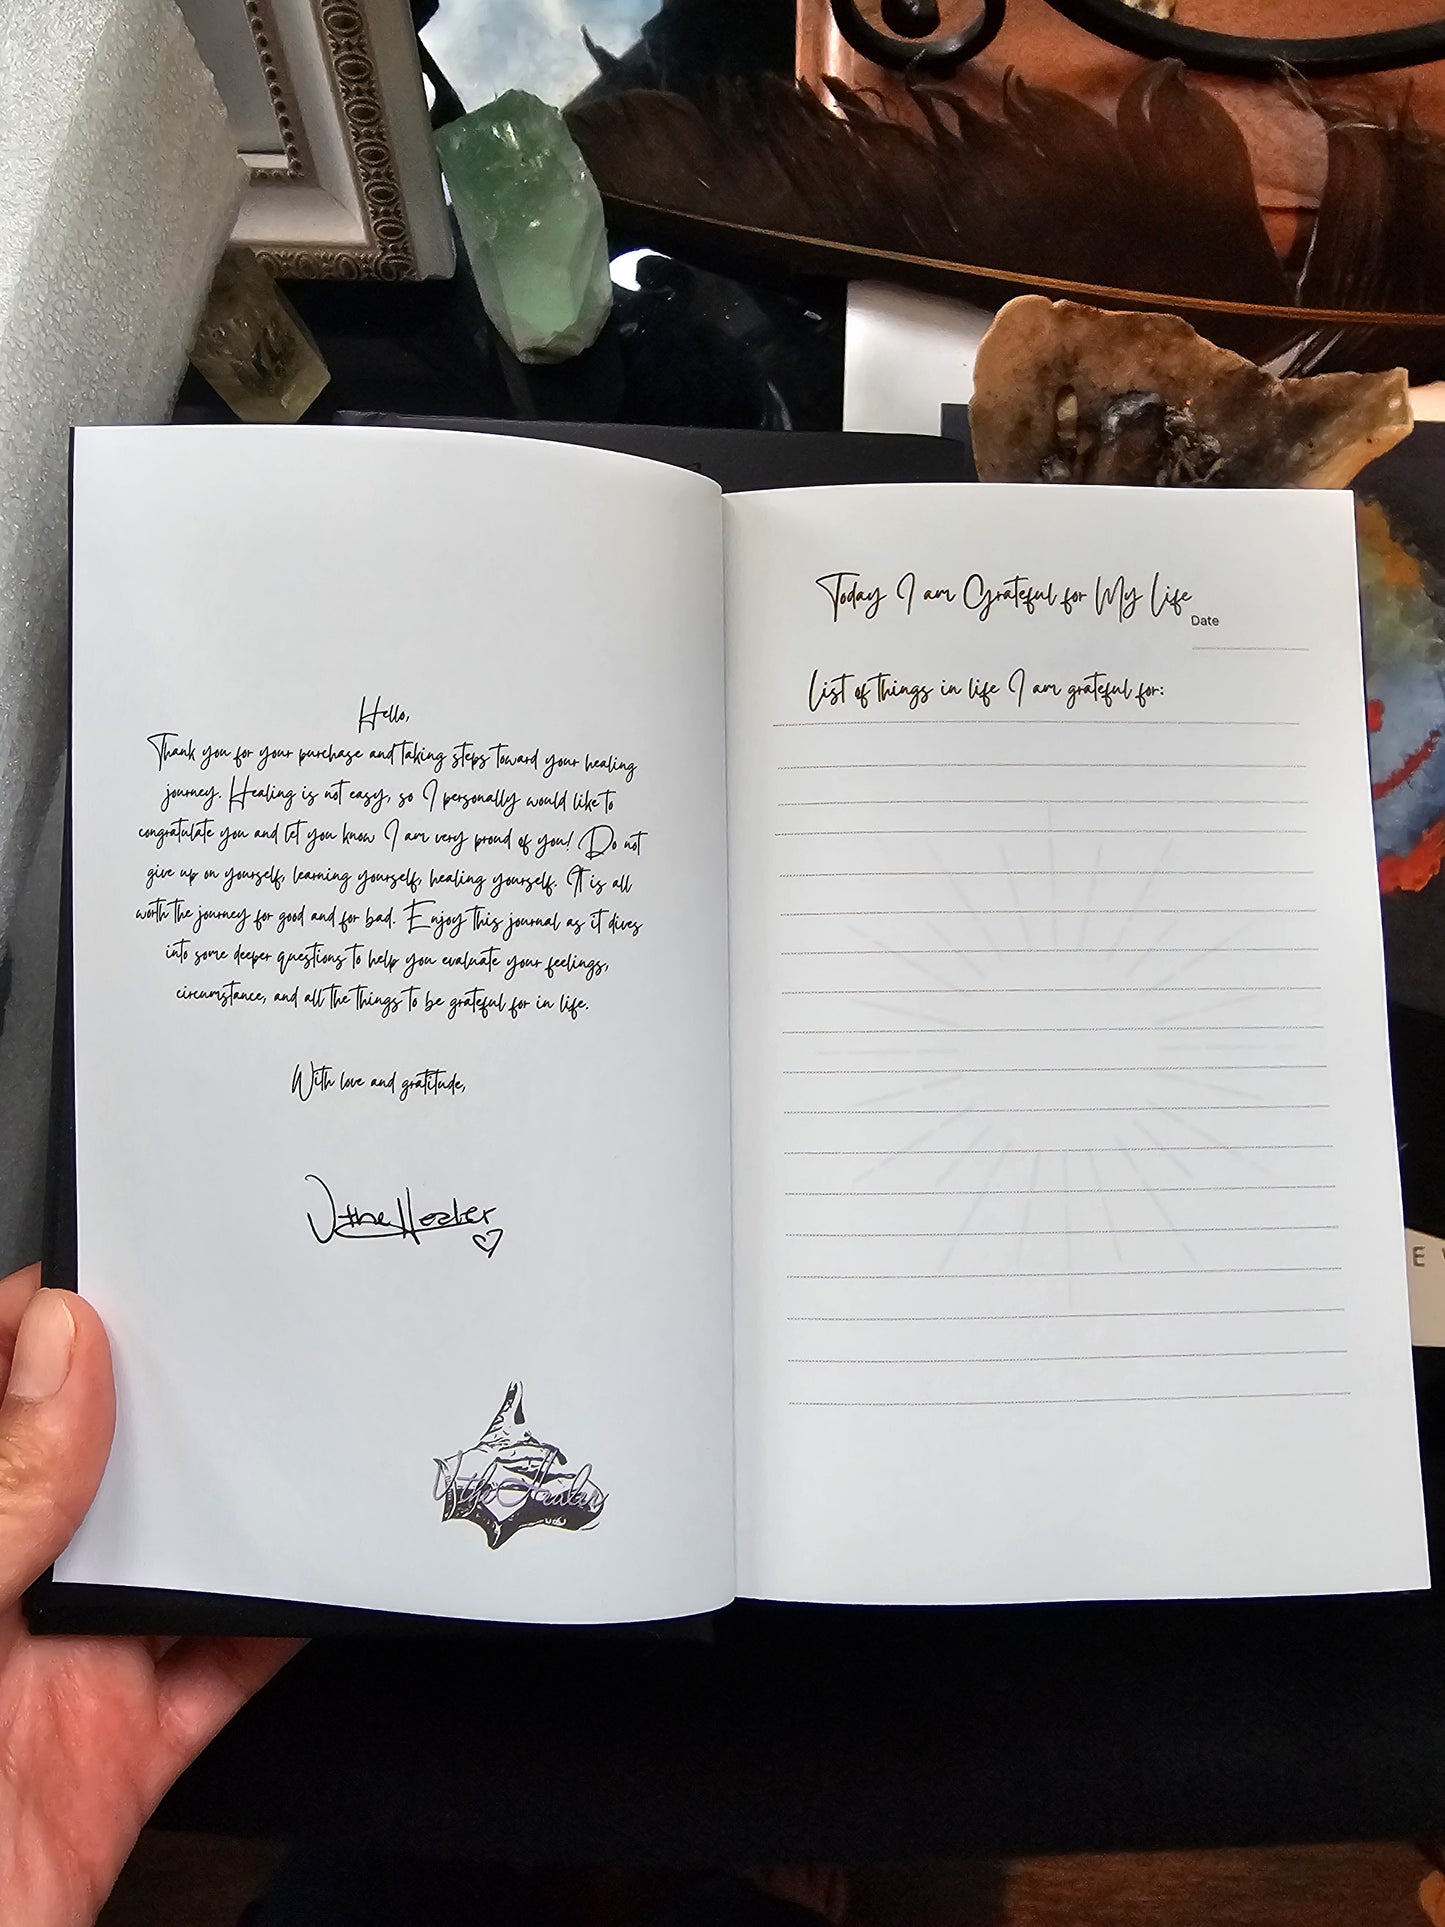 Hello,
Thank you for your purchase and taking steps toward your healing
journey. Healing is not easy, so I personally would like to
congratulate you and let you know I am very proud of you! Do not
give up on yourself, learning yourself, healing yourself. It is all
worth the journey for good and for bad. Enjoy this journal as it dives
into some deeper questions to help you evaluate your feelings,
circumstance, and all the things to be grateful for in life.
With love and gratitude,
V the Healer
V the Healer
Today I am Grateful for My Life
Date
List of things in life I am grateful for:
E